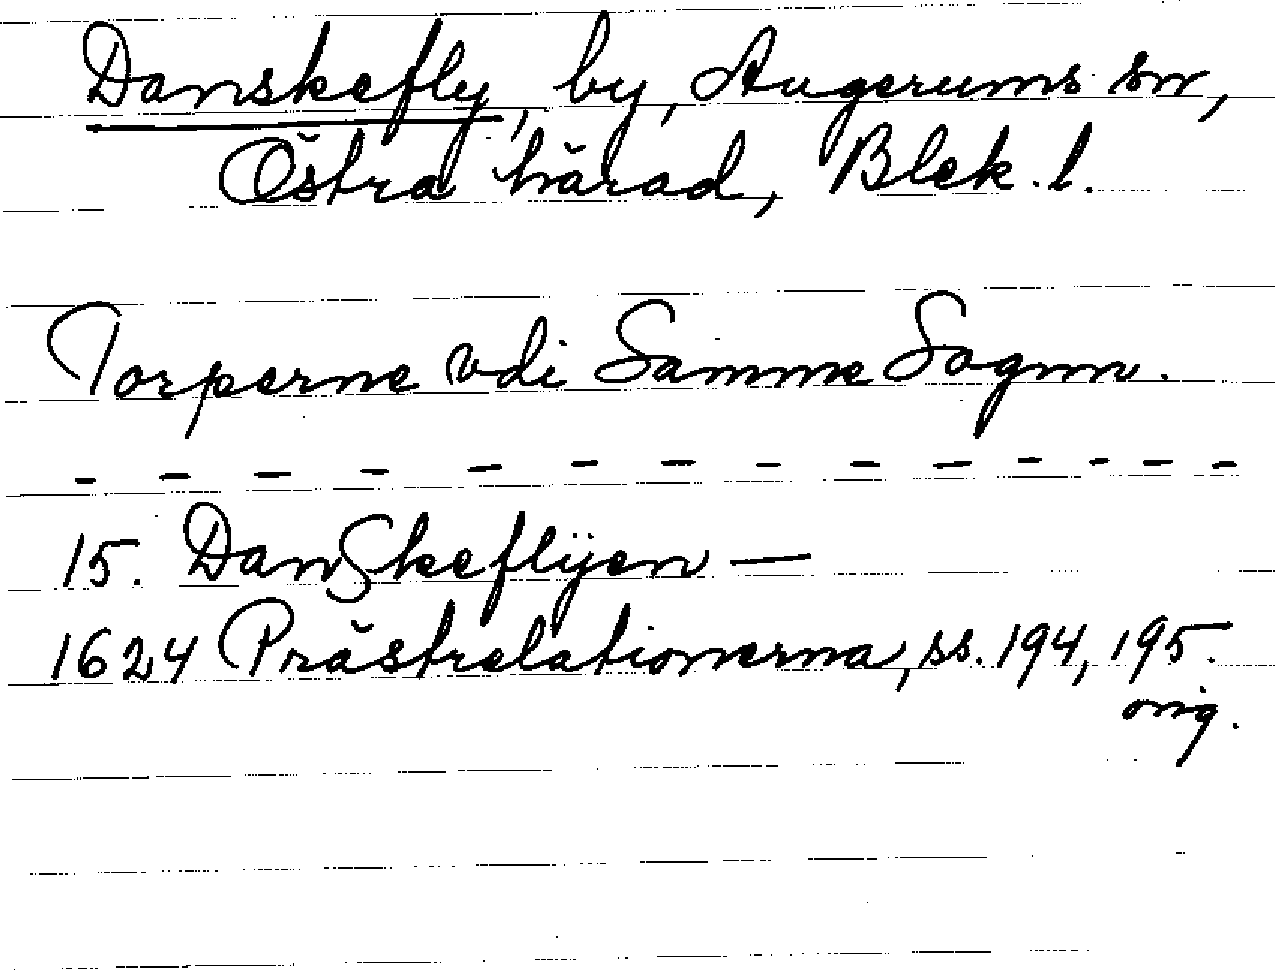 Danskefly, by, Augerums sn,
Östra härad, Blek. l.
Torperne vdi Samme Sognn.
- - - - - - - - - - - - - -
15. Danßkeflÿen —
1624 Prästrelationerna, ss. 194, 195.
orig.